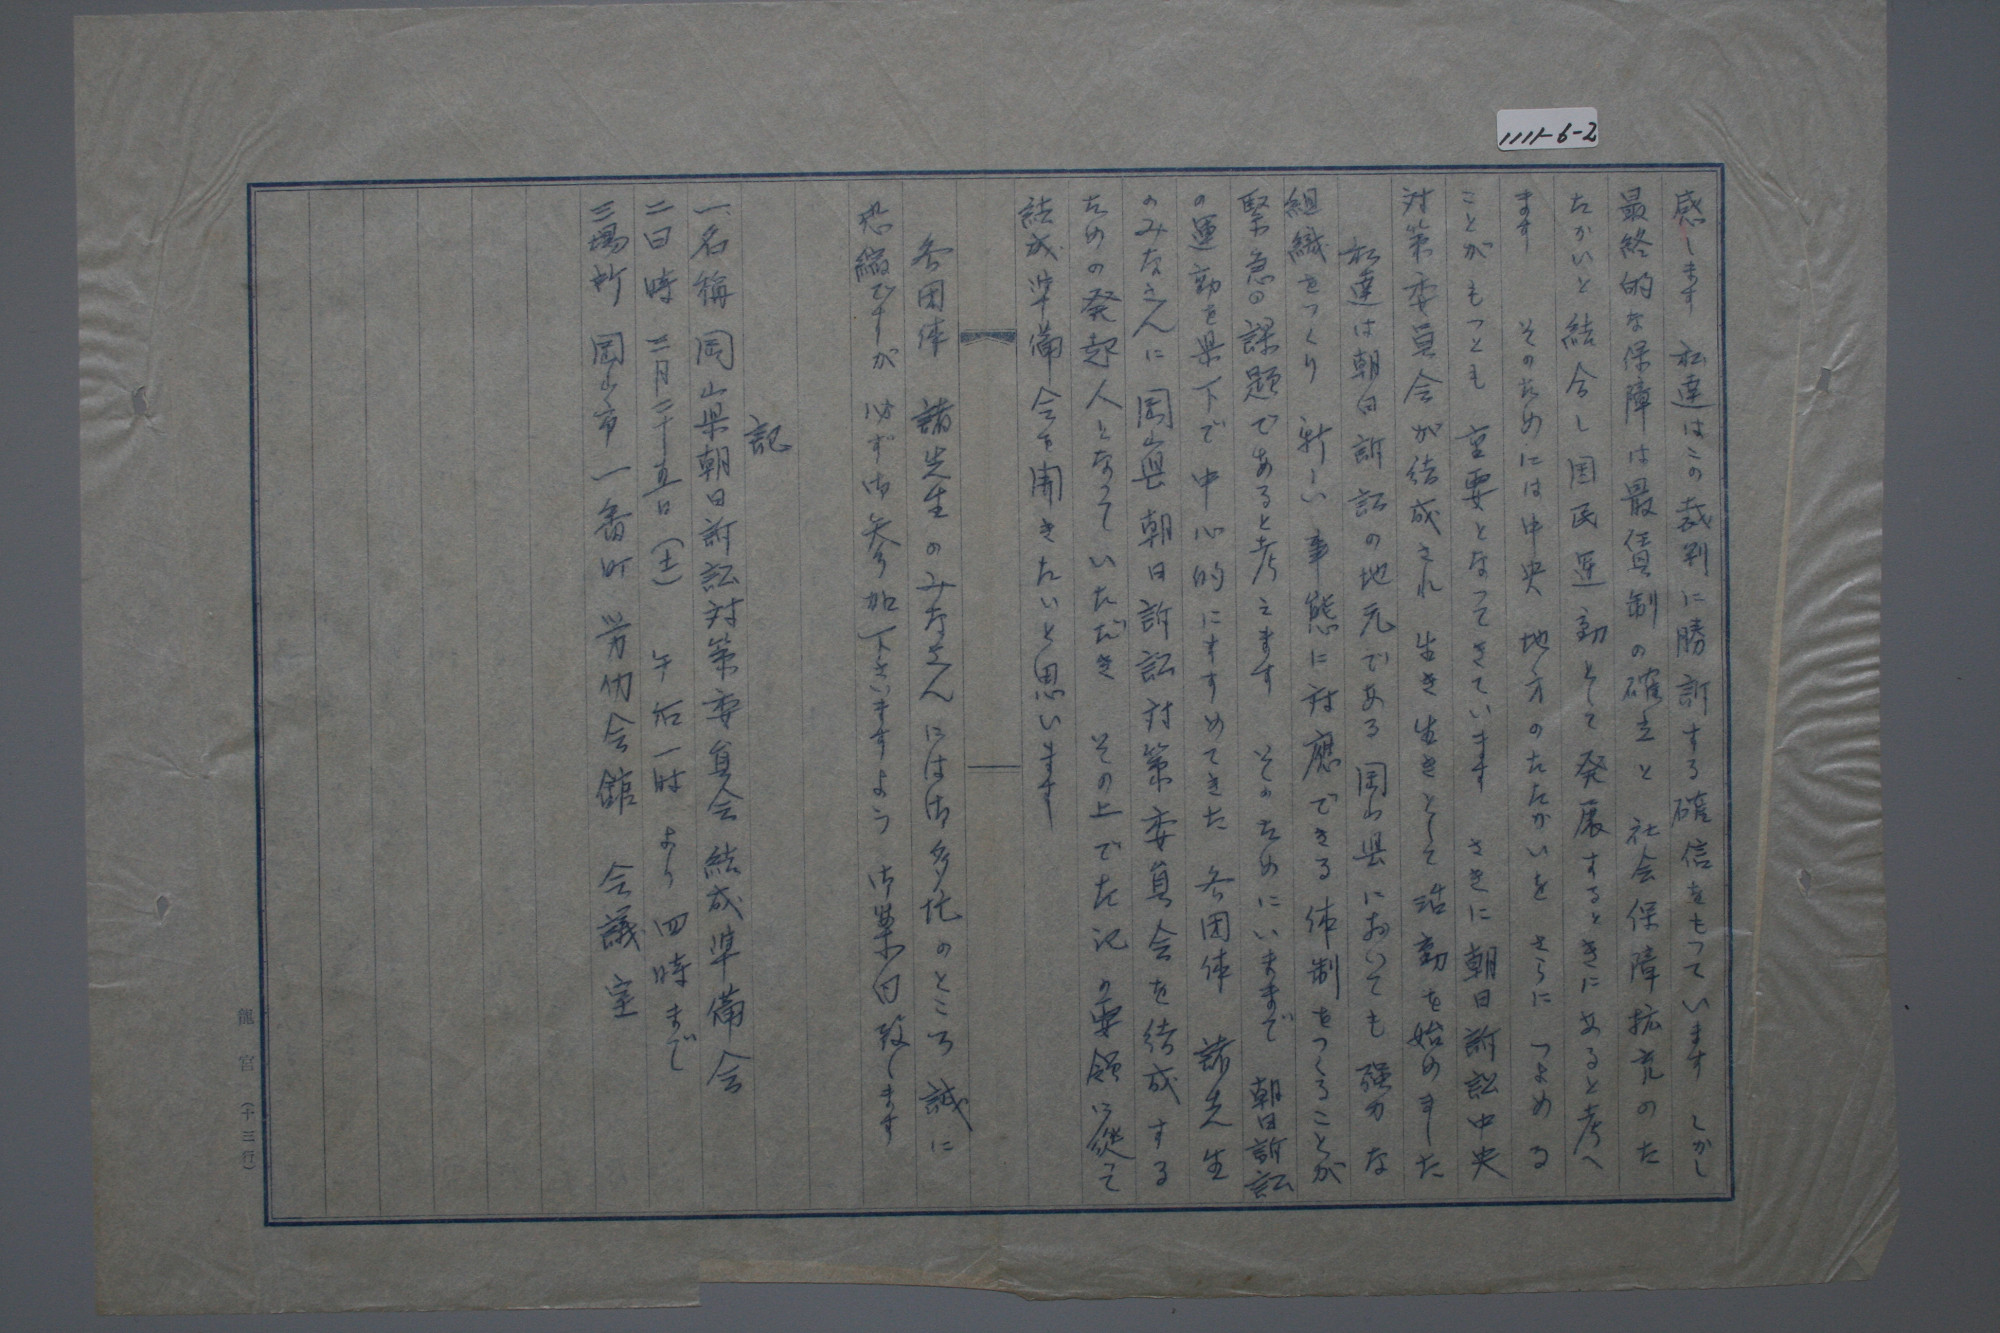 1111-6-2
感します 私達はこの裁判に勝訴する確信をもっています しかし
最終的な保障は最賃制の確立と 社会保障拡充のた
たかいと結合し国民運動として発展するときにあると考へ
ます そのためには中央 地方のたたかいを さらに つよめる
ことがもっとも 重要となってきています さきに朝日訴訟中央
対策委員会が結成され 生き生きとして活動を始めました
私達は朝日訴訟の地元である岡山県においても 強力な
組織をつくり 新しい事態に対應できる体制をつくることが
緊急の課題であると考えます そのためにいままで 朝日訴訟
の運動を県下で中心的にすすめてきた 各団体 諸先生
のみなさんに岡山県朝日訴訟対策委員会を結成する
ための発起人となっていただき その上で左記の要領に從って
結成準備会を開きたいと思います
各団体 諸先生のみなさんには御多忙のところ 誠に
恐縮ですが 必ず御参加下さいますよう 御案内致します
記
一、名稱 岡山県朝日訴訟対策委員会結成準備会
二日時 三月二十五日(土) 午后一時より四時まで
三場所 岡山市一番町 労働会館 会議室
龍宮(十三行)